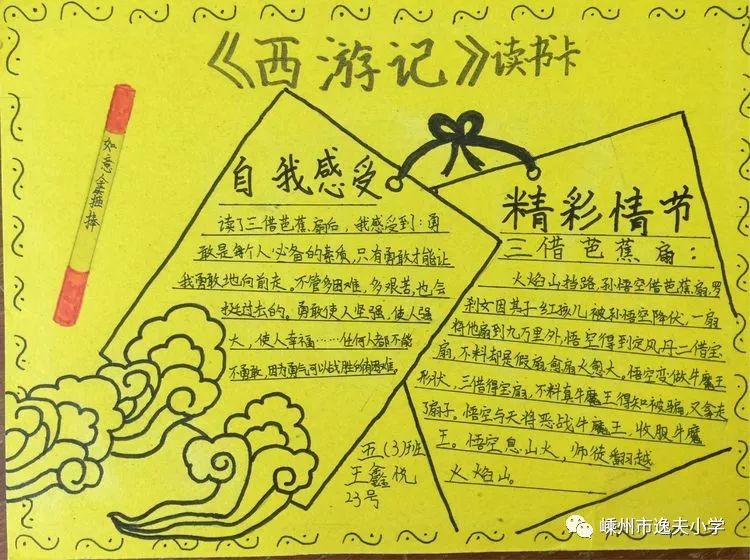 《西游记》读书卡
如意金箍棒
自我感受
读了三借芭蕉扇后，我感受到：勇
敢是每个人必备的素质，只有勇敢才能让
我勇敢地向前走。不管多困难，多艰苦，也会
挺过去的。勇敢使人坚强，使人强
大，使人幸福……任何人都不能
不勇敢，因为勇气可以战胜所有困难。
精彩情节
三借芭蕉扇：
火焰山挡路，孙悟空借芭蕉扇，罗
刹女因其子红孩儿被孙悟空降伏，一扇
将他扇到九万里外，悟空得到定风丹二借宝
扇，不料却是假扇，愈扇火愈大。悟空变做牛魔王
形状，三借得宝扇，不料真牛魔王得知被骗，又拿走
了扇子。悟空与天将恶战牛魔王，收服牛魔
王。悟空息山火，师徒翻越
火焰山。
五(3)班
王鑫悦
23号
嵊州市逸夫小学